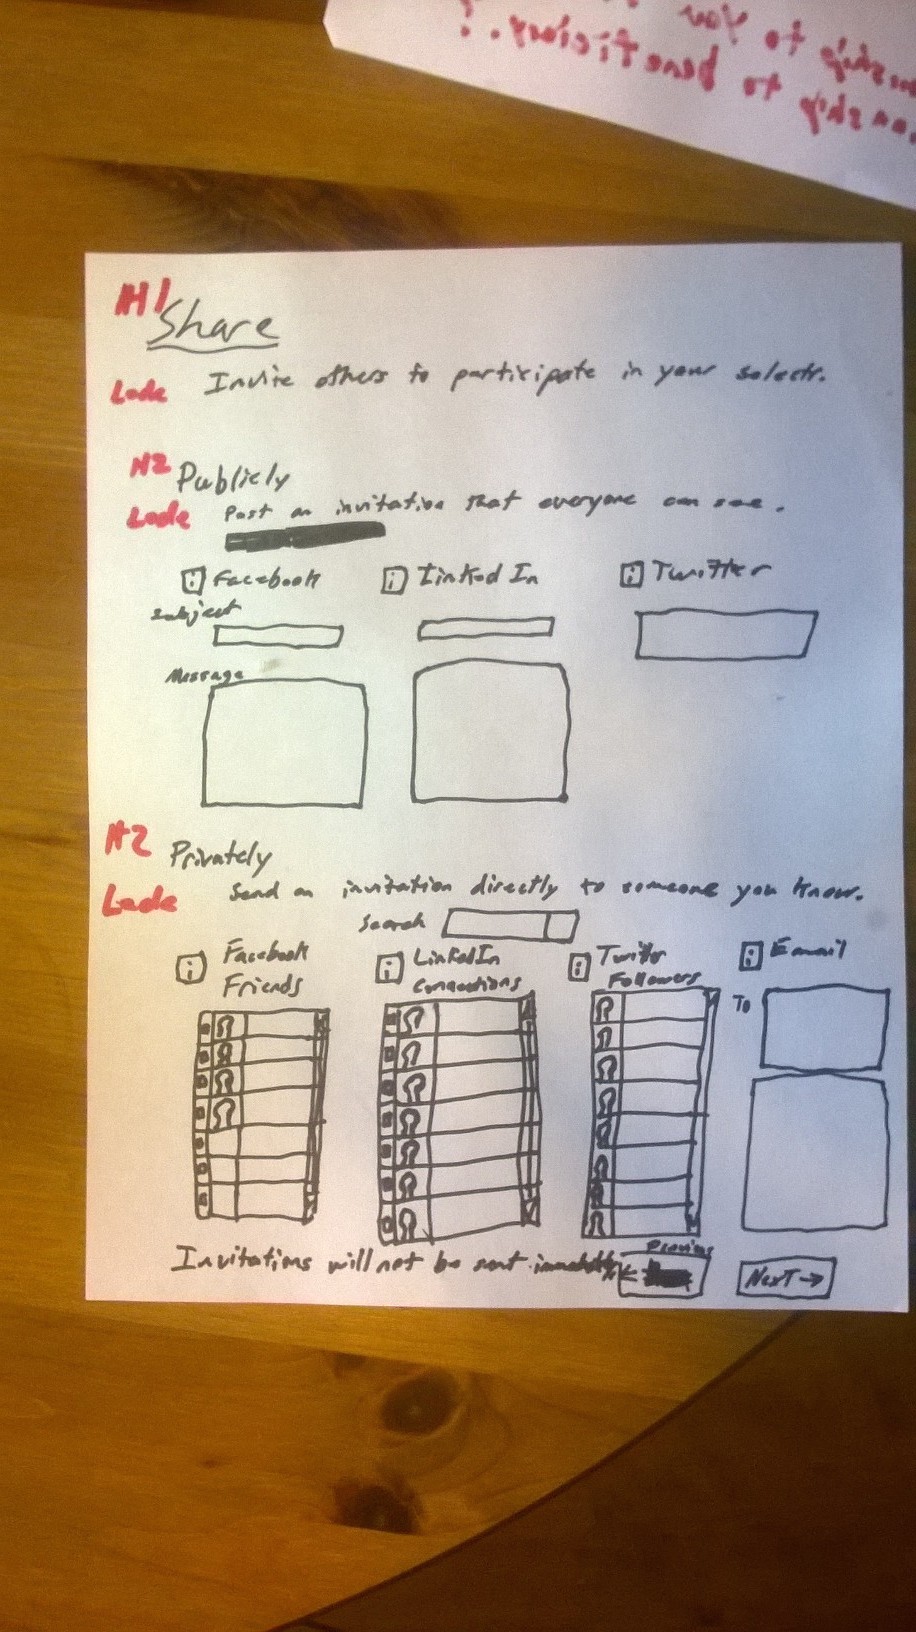 you to
ship to beneficiary.?
ship
H1
Share
Lede Invite others to participate in your selectr.
H2 Publicly
Lede Post an invitation that everyone can see.
Facebook LinkedIn Twitter
Subject
Message
H2 Privately
Lede Send an invitation directly to someone you know.
Search
Facebook Friends
LinkedIn Connections
Twitter Followers
Email
To
Invitations will not be sent immediately
Previous
←
Next →